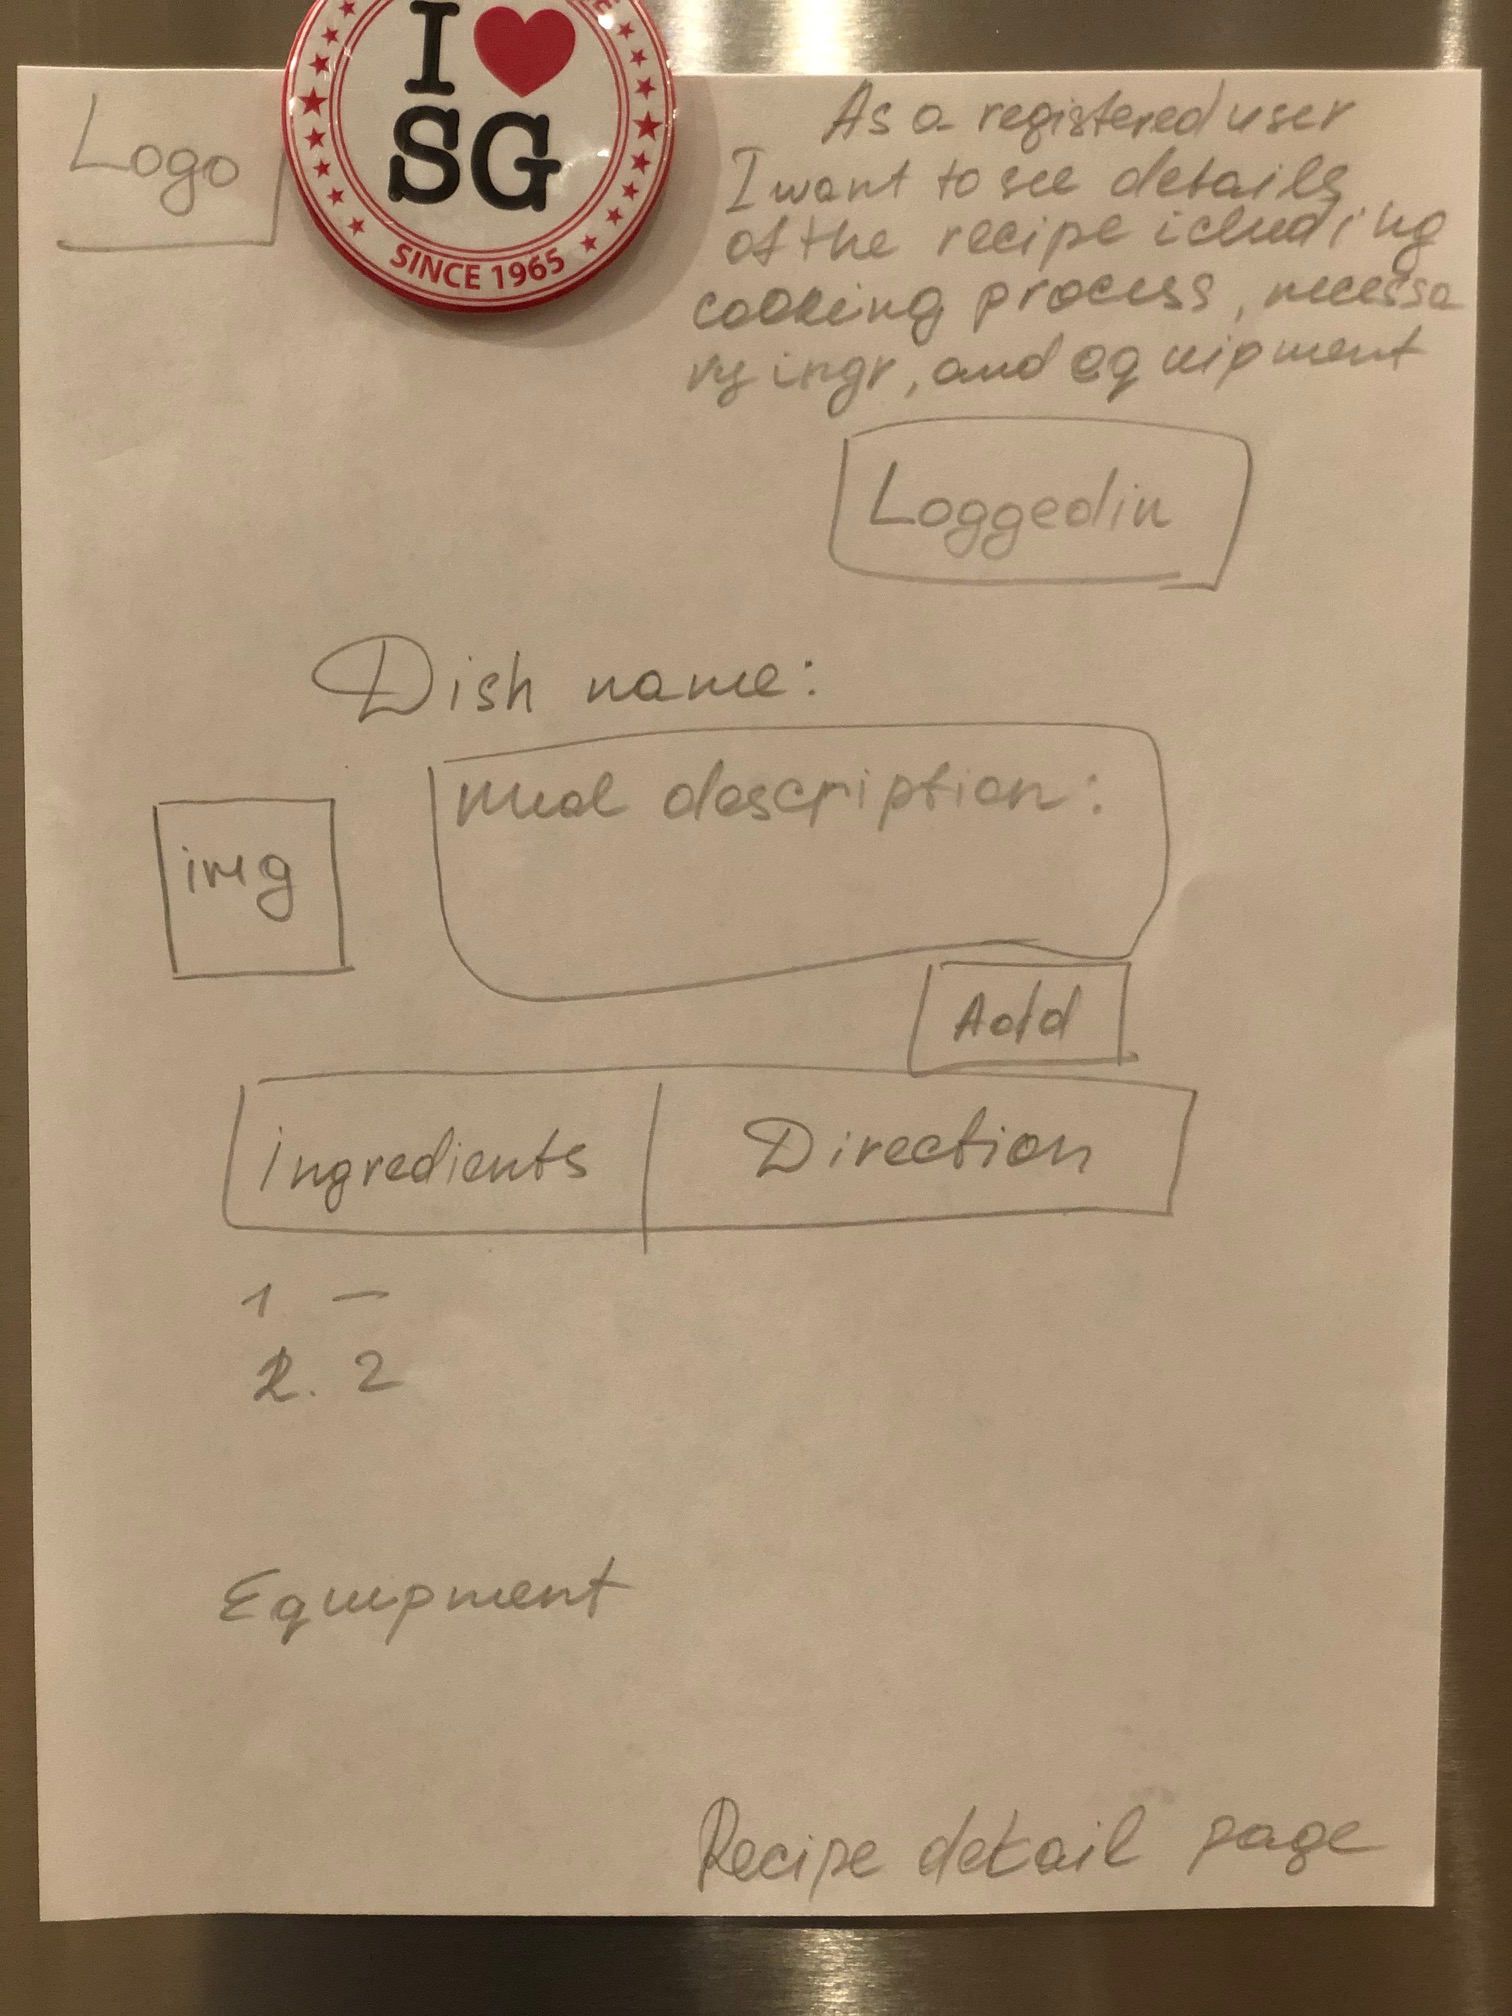 I ❤ SG
SINCE 1965
Logo
As a registered user
I want to see details
of the recipe icluding
cooking process, necessa
ry ingr, and equipment
Loggedin
Dish name:
img
description:
Add
ingredients
Direction
1 —
2. 2
Equipment
Recipe detail page